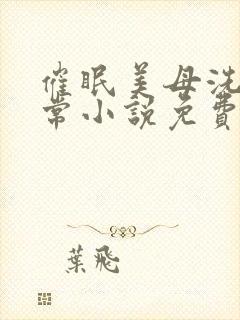 催眠美母洗
常小説免費
葉飛